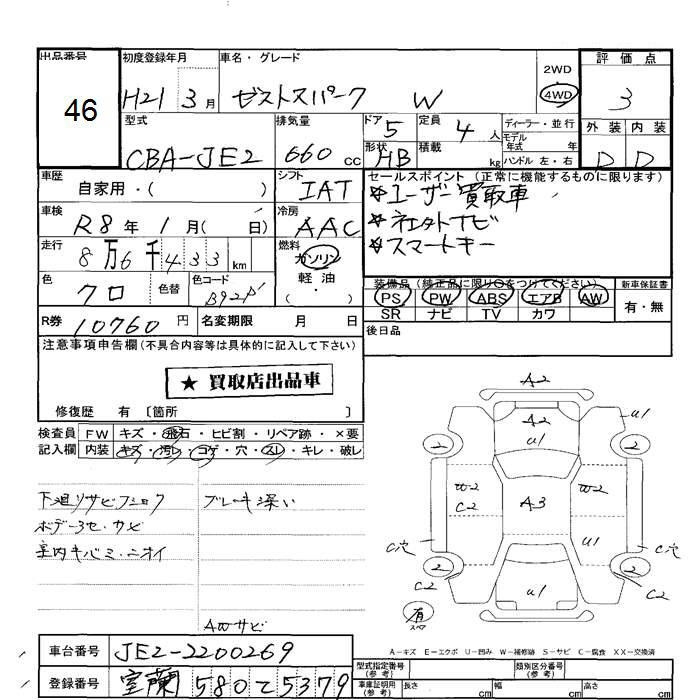 出品番号 初度登録年月 車名・グレード 2WD 評価点
46 H21 3月 ゼストスパーク W 4WD 3
型式 排気量 ドア 5 定員 4人 ディーラー・並行 外装 内装
CBA-JE2 660cc 形状 HB 積載 kg モデル年式 年 D D
ハンドル 左・右
車歴 シフト セールスポイント (正常に機能するものに限ります)
自家用・( ) IAT ☆ユーザー買取車
車検 冷房 ☆社外ナビ
R8年 1月( 日) AAC ☆スマートキー
走行 燃料
8万6千433km ガソリン
軽油
・( )
色 色替 色コード 装備品 (純正品に限り○をつけてください) 新車保証書
クロ B92P PS PW ABS エアB AW 有・無
SR ナビ TV カワ
R券 10760円 名変期限 月 日 後日品
注意事項申告欄(不具合内容等は具体的に記入して下さい)
★ 買取店出品車
修復歴 有 〔箇所 〕
検査員 FW キズ・飛石・ヒビ割・リペア跡・×要
記入欄 内装 キズ・汚レ・コゲ・穴・スレ・キレ・破レ
下廻りサビ ブレーキ深い
ボデー3セ・サビ
室内キバミ・ニオイ
AWサビ
A2
A2 U1 U1
2 2
W2 C2 A3 W2
U1
C穴 C穴
2 2
C2 U1 C2
有 スペア
A-キズ E-エクボ U-凹み W-補修跡 S-サビ C-腐食 XX-交換済
車台番号 JE2-2200269
登録番号 室蘭 580 て 5379
型式指定番号(参考) 類別区分番号(参考)
車庫証明用(参考) 長さ cm 幅 cm 高さ cm